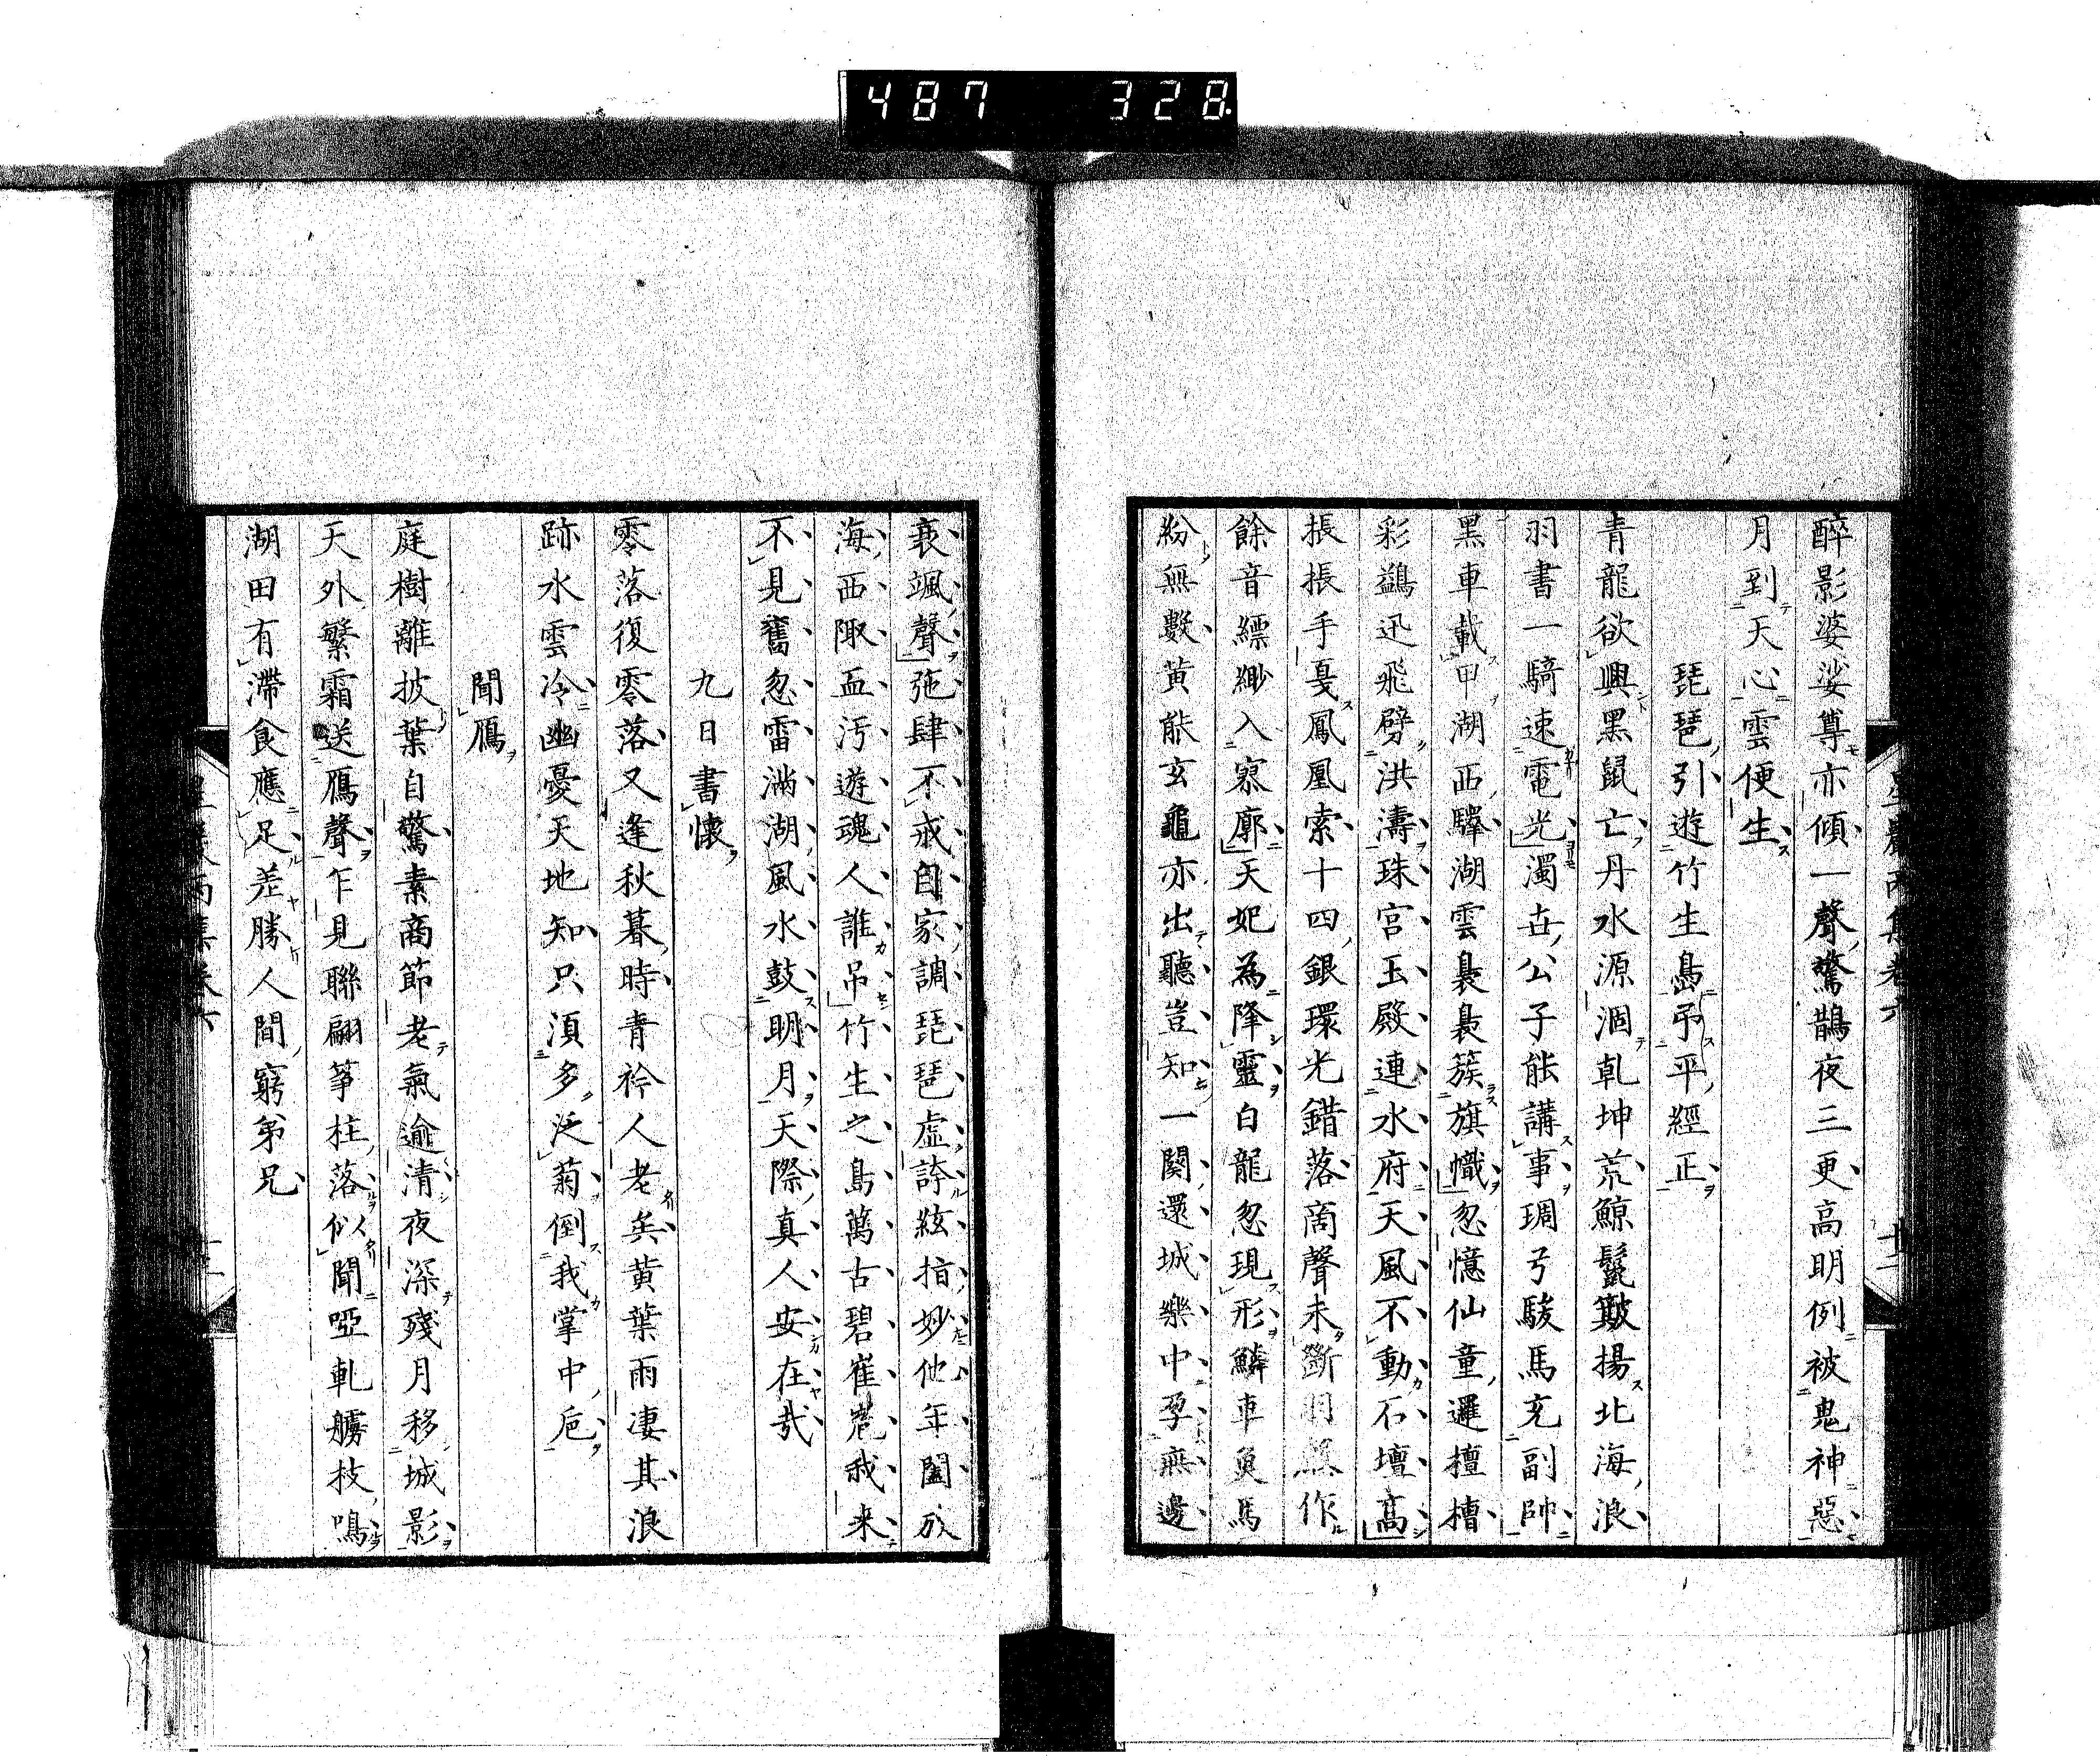 487 328
醉影婆娑尊亦傾一聲驚鵲夜三更高明例被鬼神惡
月到天心雲便生
琵琶引遊竹生島弔平經正
青龍欲興黑鼠亡丹水源涸乾坤荒鯨鬣皺揚北海浪
羽書一騎速電光濁世公子能講事琱弓駿馬充副帥
黑車載甲湖西驛湖雲裊裊簇旗幟忽憶仙童邏檀槽
彩鷁迅飛劈洪濤珠宮玉殿連水府天風不動石壇高
掁掁手戛鳳凰索十四銀環光錯落商聲未斷羽作
餘音縹緲入寥廓天妃為降靈白龍忽現形鱗車奠馬
紛無數黃能玄龜亦出聽豈知一闋還城樂中孕無邊
衰颯聲弛肆不戒自家調琵琶虛誇絃指妙他年闔族
海西陬血汚遊魂人誰吊竹生之島萬古碧崔嵬我来
不見舊忽雷滿湖風水鼓明月天際真人安在哉
九日書懷
零落復零落又逢秋暮時青衿人老矣黃葉雨凄其浪
跡水雲冷幽憂天地知只須多泛菊倒我掌中巵
聞鴈
庭樹離披葉自驚素商節老氣逾清夜深殘月移城影
天外繁霜送鴈聲乍見聯翩筝柱落似聞啞軋艣枝鳴
湖田有滯食應足差勝人間窮弟兄